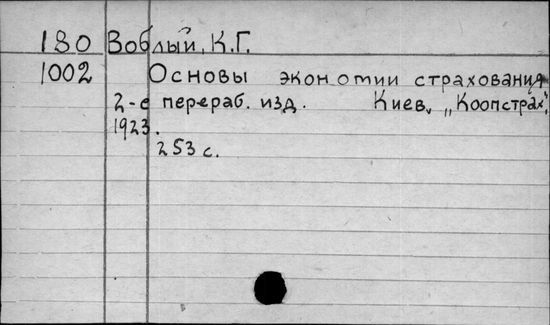 180 Воблый, К.Г.
1002 Основы экономии страхования
2-е перераб. изд. Киев, „Коопстрах",
1923.
253 с.